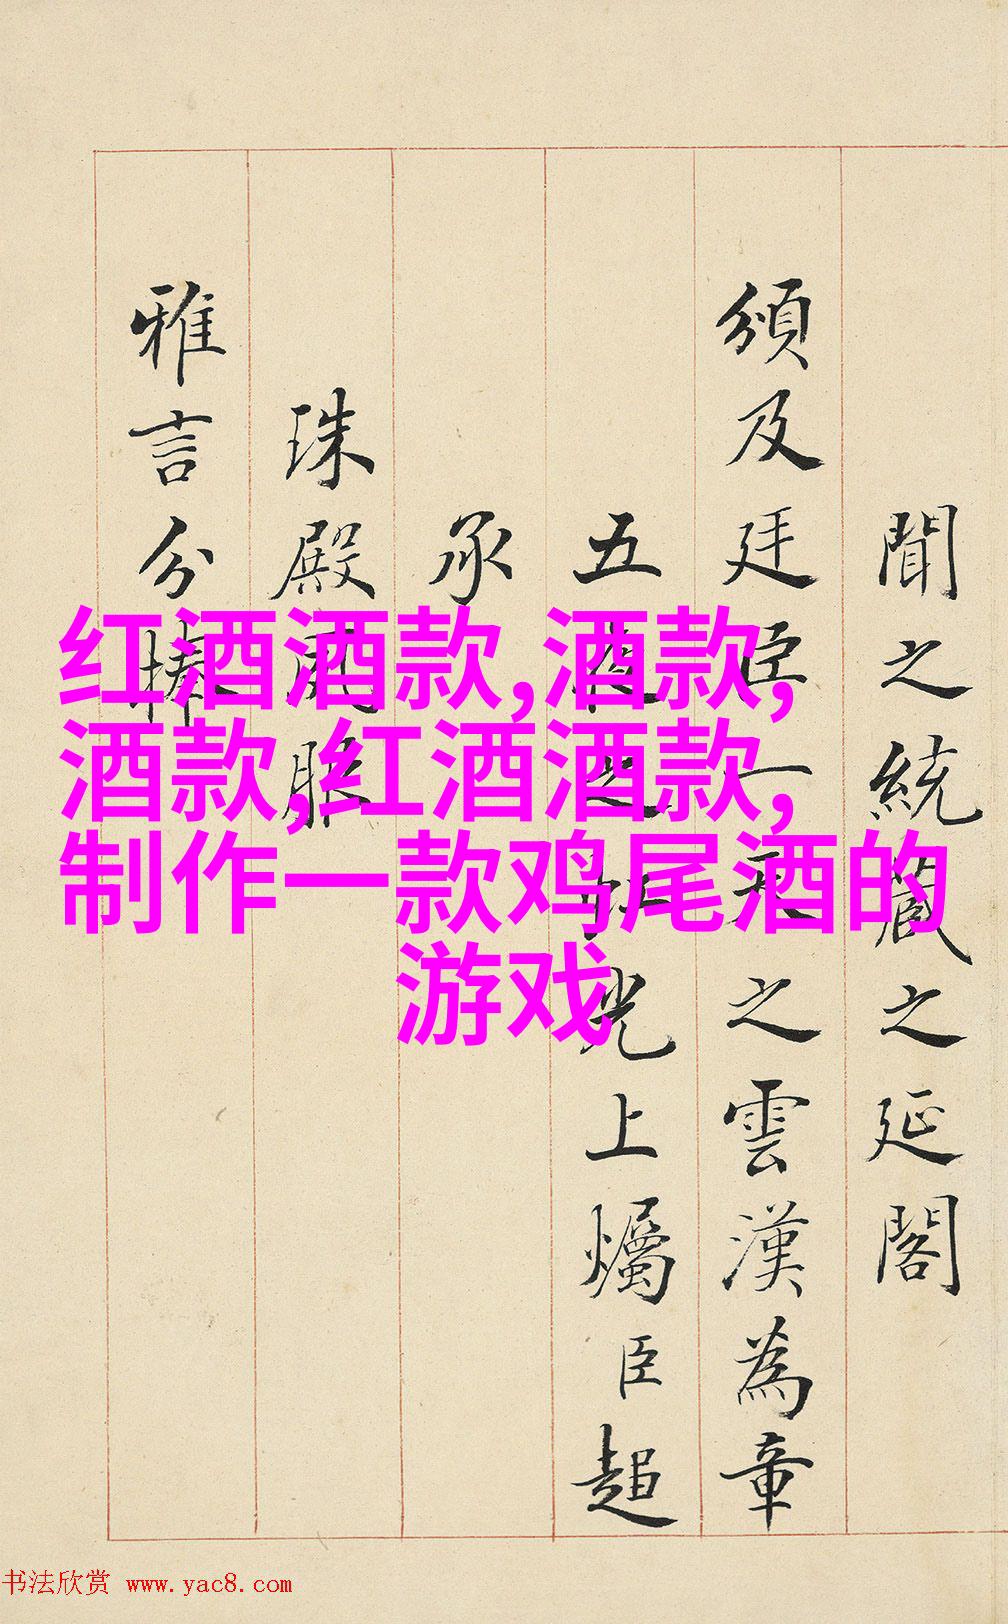 聞之統箴之延閣
頒及廷臣一天之雲漢為章
五夜之虹光上爥臣超
承
珠殿風脤
雅言分捧
红酒酒款,酒款,
酒款,红酒酒款,
制作一款鸡尾酒的
游戏
书法欣赏 www.yac8.com